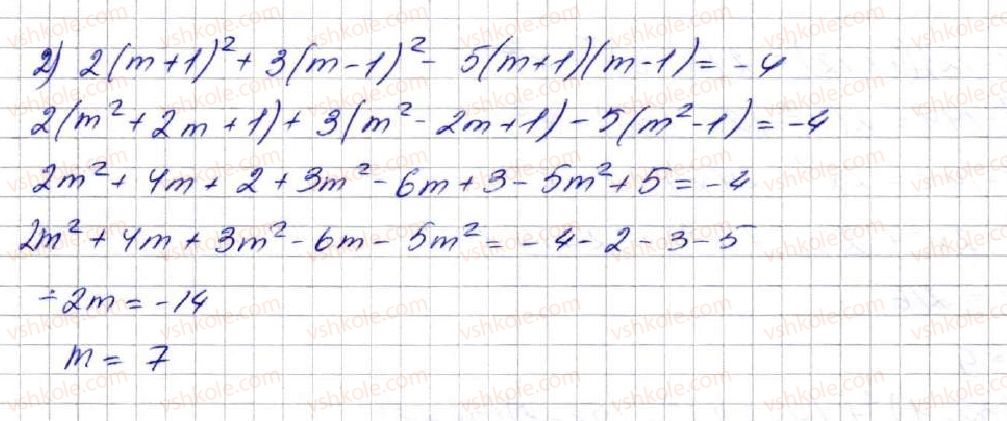 2) 2(m+1)² + 3(m-1)² - 5(m+1)(m-1) = -4
2(m² + 2m + 1) + 3(m² - 2m + 1) - 5(m² - 1) = -4
2m² + 4m + 2 + 3m² - 6m + 3 - 5m² + 5 = -4
2m² + 4m + 3m² - 6m - 5m² = -4 - 2 - 3 - 5
-2m = -14
m = 7